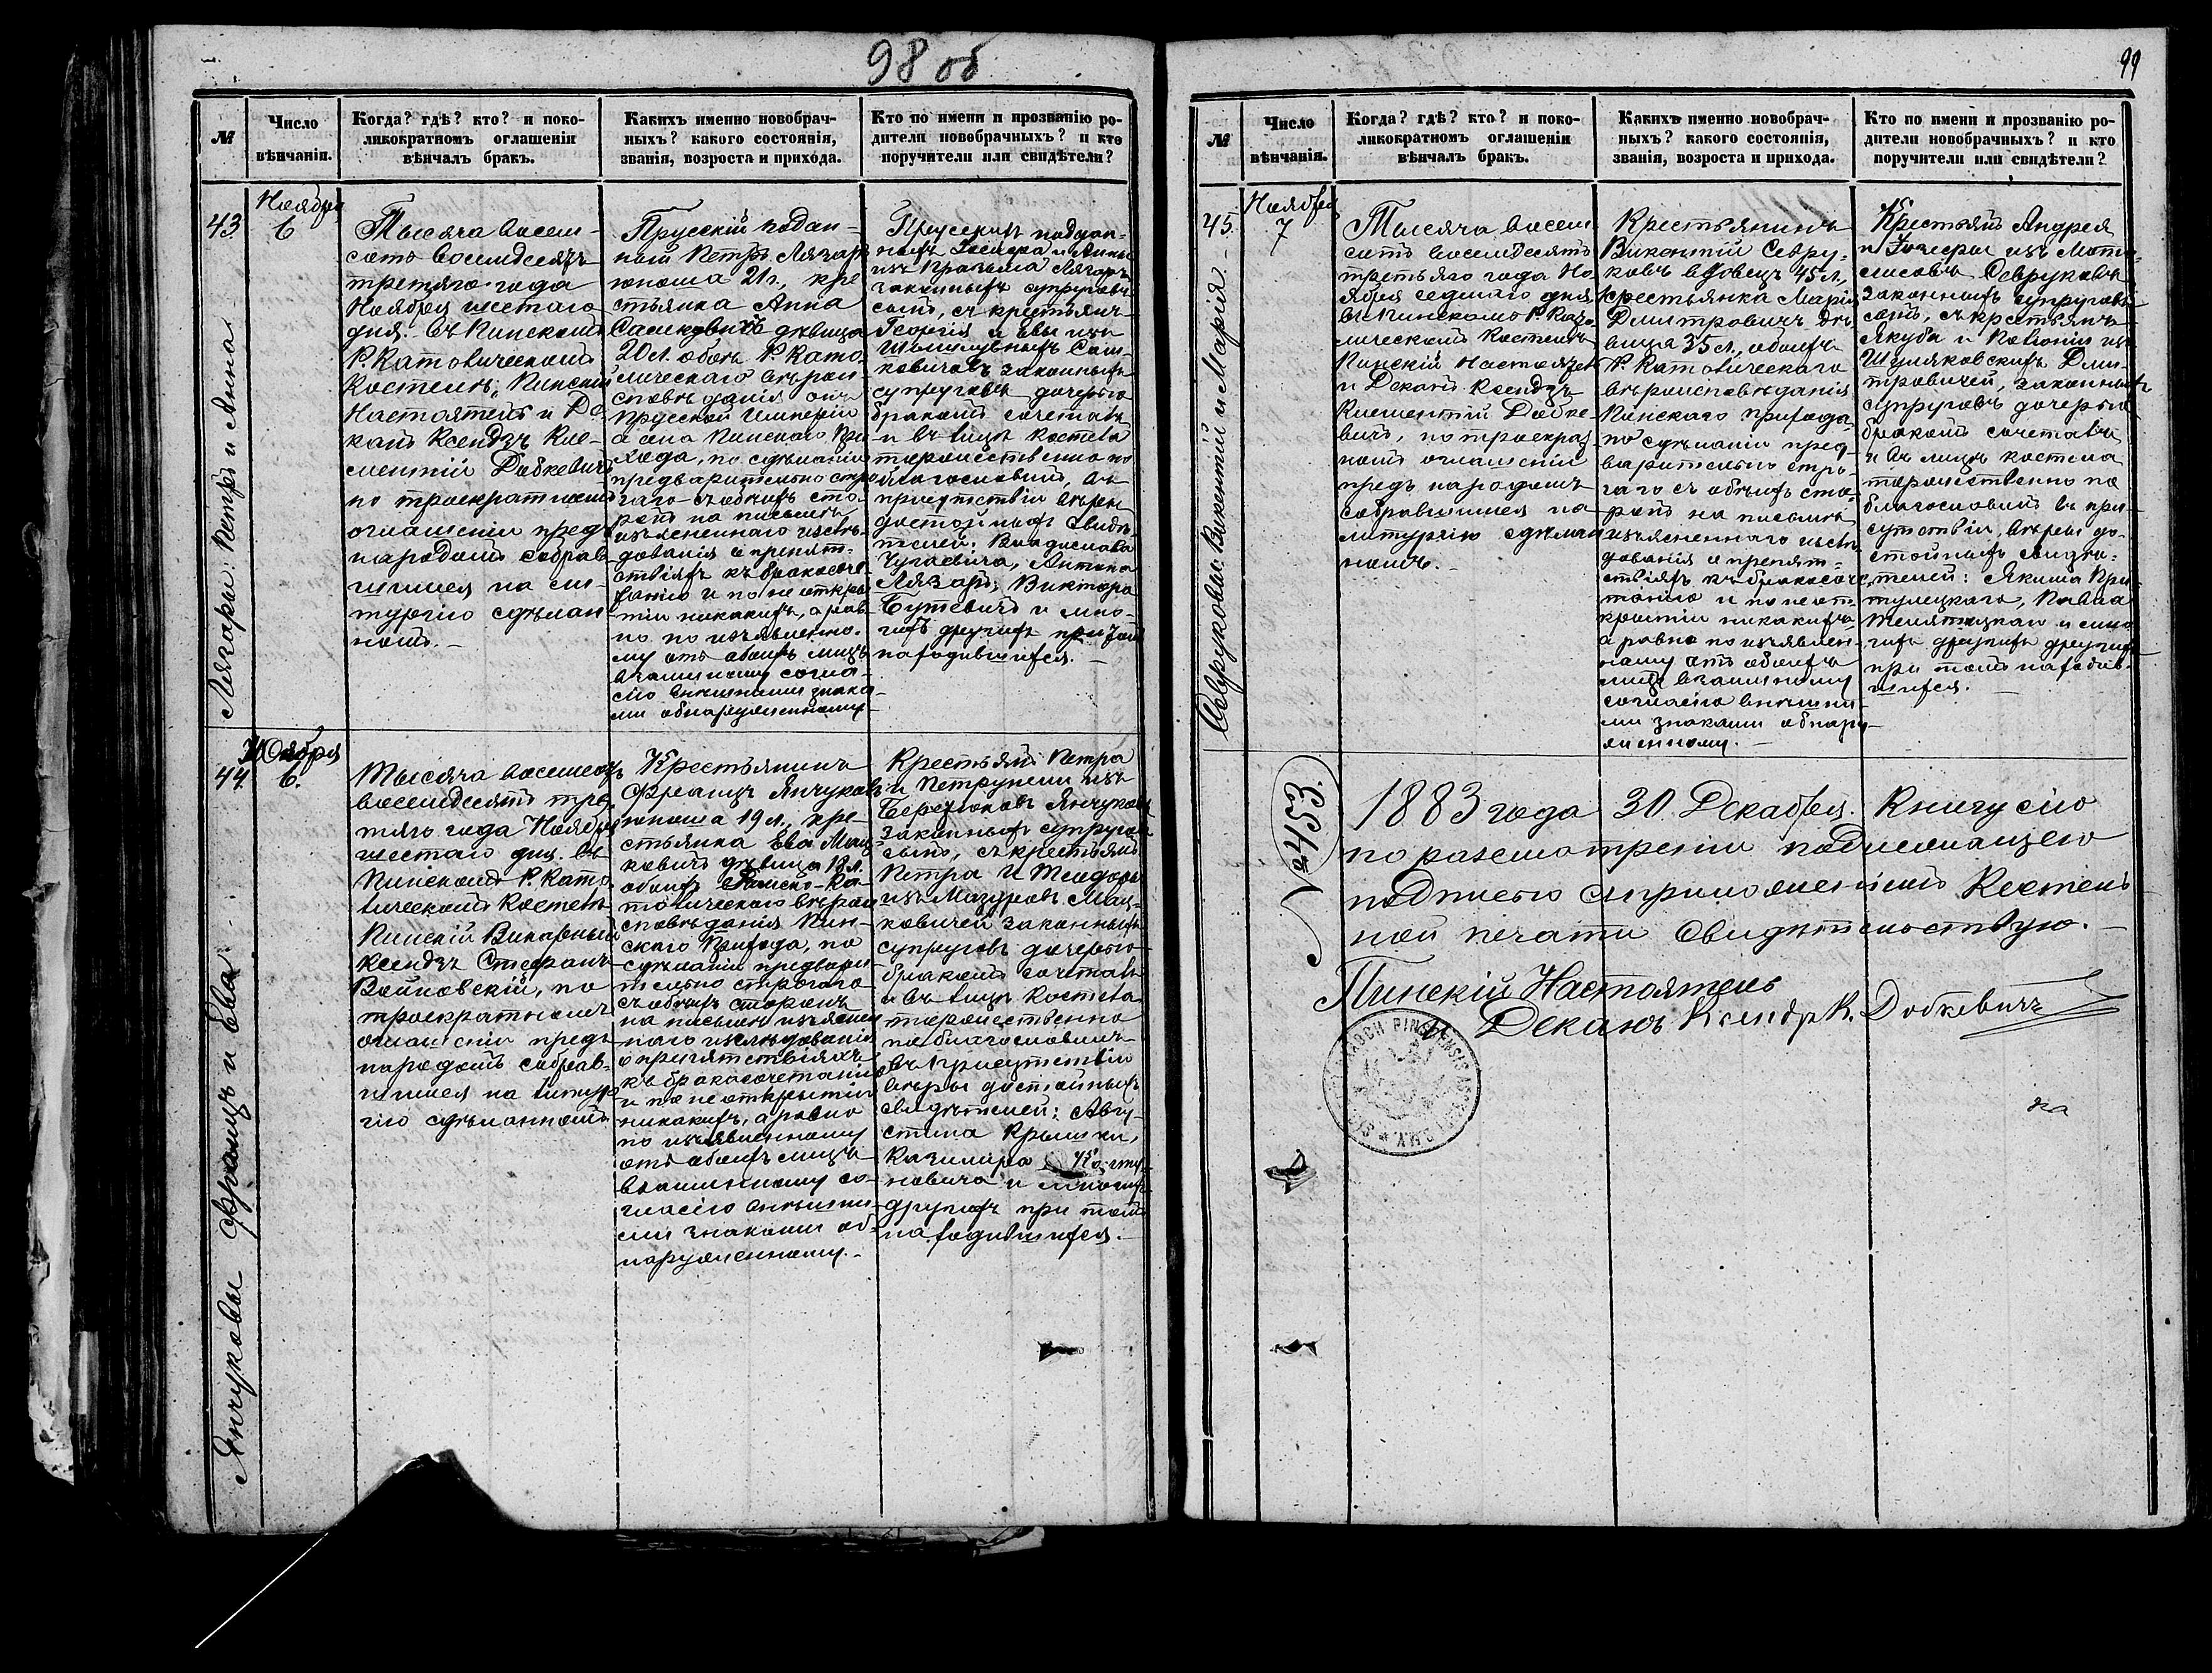 98 об
№
Число
вѣнчанія.
Когда? гдѣ? кто? и поко-
ликократномъ оглашеніи
вѣнчалъ бракъ.
Какихъ именно новобрач-
ныхъ? какого состоянія,
званія, возроста и прихода.
Кто по имени и прозванію ро-
дители новобрачныхъ? и кто
поручители или свидѣтели?
43
Ноября
6
Лягары: Петръ и Анна.
Тысяча восем-
сотъ восемдесятъ
третяго года
Ноября шестаго
дня. въ Пинскомъ
Р. Католическомъ
Костелѣ, Пинскій
Настоятель и Де-
канъ Ксендзъ Кле-
ментій Добкевичъ
по троекратномъ
оглашеніи предъ
народомъ собрав-
шимся на ли-
тургію сдѣлан-
номъ.
Прусскій поддан-
ный Петръ Лягаръ
юноша 21 л., кре
стьянка Анна
дѣвица
20 л. обоихъ Р. Като
лическаго вѣроис-
повѣданія онъ
Прусской Имперіи
а она Пинскаго При
хода, по сдѣланіи
предварительно стро
гаго съ обоихъ сто-
ронъ на письмѣ
изъясненнаго изслѣ-
дованія о препят-
ствіяхъ къ бракосоче-
танію и по не откры
тіи никакихъ, а рав-
но по изъявленно-
му отъ обоихъ лицъ
взаимному согла-
сію внѣшними знака-
ми обнаруженному
Прусскихъ поддан-
ныхъ и Анны
изъ Лягаръ
законныхъ супруговъ
сынъ, съ крестьянъ
Георгія и Евы изъ
Сам-
ковичовъ законныхъ
супруговъ дочерью
бракомъ сочеталъ
и въ лицѣ костела
торжественно по
благословилъ, въ
присутствіи вѣры
достойныхъ свидѣ-
телей: Владислава
Антона
Лягаръ, Виктора
Буткевичъ и мно-
гихъ другихъ при томъ
находившихся.
44
Ноября
6.
Янчуковы Францъ и Ева
Тысяча восемсотъ
восемдесятъ тре-
тяго года Ноября
шестаго дня. въ
Пинскомъ Р. Като
лическомъ Костелѣ
Пинскій Викарный
Ксендзъ Стефанъ
Войновскій, по
троекратномъ
оглашеніи предъ
народомъ собрав-
шимся на литур
гію сдѣланномъ
Крестьянинъ
Францъ Янчуковъ
юноша 19 л., кре-
стьянка Ева Мац-
ковичъ дѣвица 18 л.
обоихъ Римско-Ка-
толическаго вѣроис
повѣданія Пин-
скаго Прихода, по
сдѣланіи предвари-
тельно строгаго
съ обоихъ сторонъ
на письмѣ изъяснен
наго изслѣдованія
о препятствіяхъ
къ бракосочетанію
и по не открытіи
никакихъ, а равно
по изъявленному
отъ обоихъ лицъ
взаимному со-
гласію внѣшни-
ми знаками об-
наруженному.
Крестьянъ Петра
и Петрунели изъ
Янчуковыхъ
законныхъ супруговъ
сынъ, съ крестьянъ
Петра и Теодоры
изъ Мазуровъ Мац-
ковичей законныхъ
супруговъ дочерью
бракомъ сочеталъ
и въ лицѣ костела
торжественно
по благословилъ
въ присутствіи
вѣры достойныхъ
свидѣтелей: Авгу-
стина
Казимира
новича и многихъ
другихъ при томъ
находившихся.
99
№
Число
вѣнчанія.
Когда? гдѣ? кто? и поко-
ликократномъ оглашеніи
вѣнчалъ бракъ.
Какихъ именно новобрач-
ныхъ? какого состоянія,
званія, возроста и прихода.
Кто по имени и прозванію ро-
дители новобрачныхъ? и кто
поручители или свидѣтели?
45.
Ноября
7
Севруковы: Викентій и Марія.
Тысяча восем
сотъ восемдесятъ
третьяго года Но
ября седмаго дня
въ Пинскомъ Р. Като
лическомъ Костелѣ
Пинскій Настоятель
и Деканъ Ксендзъ
Клементій Добке-
вичъ, по троекрат
номъ оглашеніи
предъ народомъ
собравшимся на
литургію сдѣлан
номъ.
Крестьянинъ
Викентій Севру-
ковъ вдовецъ 45 л.,
крестьянка Марія
Дмитровичъ дѣ-
вица 35 л., обоихъ
Р. Католическаго
вѣроисповѣданія
Пинскаго прихода
по сдѣланіи пред-
варительно стро-
гаго съ обоихъ сто-
ронъ на письмѣ
изъясненнаго изслѣ
дованія о препят-
ствіяхъ къ бракосоче-
танію и по не от-
крытіи никакихъ,
а равно по изъявлен-
ному отъ обоихъ
лицъ взаимному
согласію внѣшни-
ми знаками обнару
женному.
Крестьянъ Андрея
и изъ
Севруковъ
законныхъ супруговъ
сынъ, съ крестьянъ
Якуба и изъ
Шуляковскихъ Дми-
тровичей, законныхъ
супруговъ дочерью
бракомъ сочеталъ
и въ лицѣ костела
торжественно по
благословилъ въ при-
сутствіи вѣры до-
стойныхъ свидѣ-
телей: Якима При-
тулецкаго, Павла
и мно
гихъ другихъ другихъ
при томъ находив-
шихся.
№ 453.
1883 года 31 Декабря. Книгу сію
по разсмотреніи подлежащею
подписью съ приложеніемъ Костель
ной печати свидѣтельствую.
Пинскій Настоятель
и Деканъ Ксендзъ К. Добкевичъ